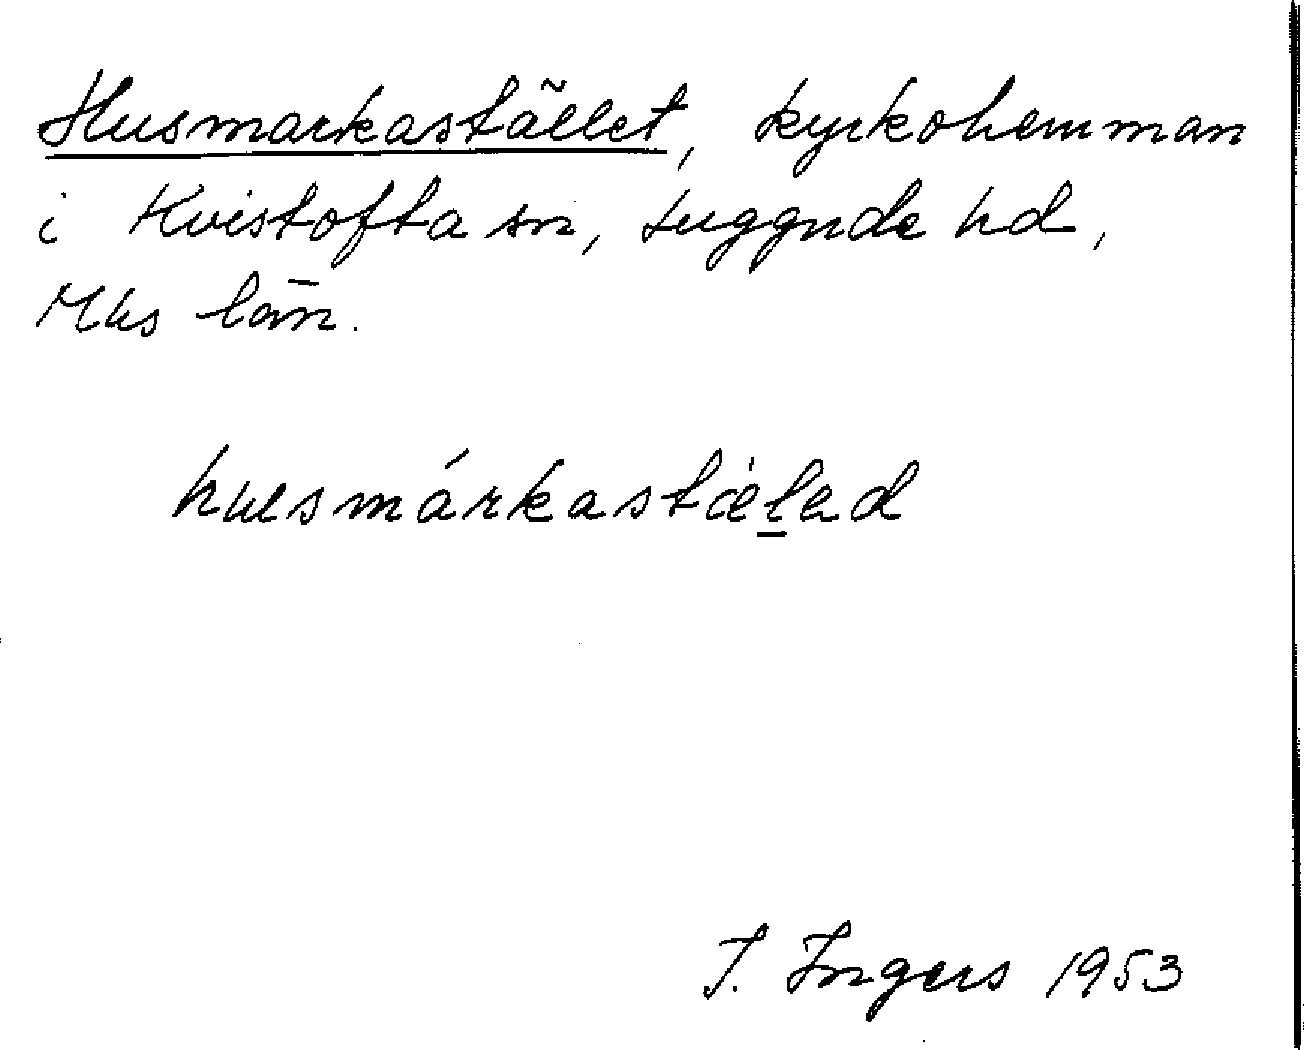 Husmarkastället, kyrkohemman
i Kvistofta sn, Luggude hd,
Mhs län.
husmárkastæ̀lad
I. Ingers 1953